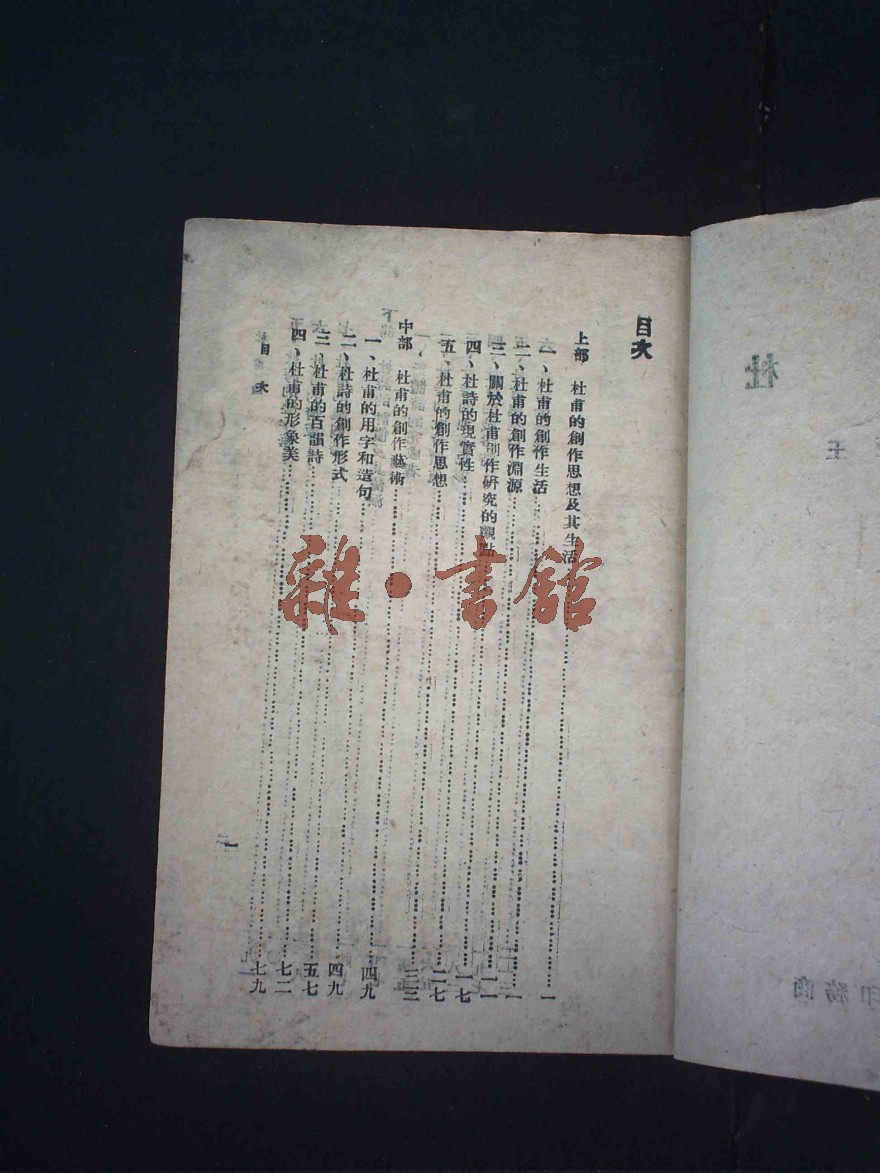 目次
上部 杜甫的創作思想及其生活……一
一、杜甫的創作生活……一
二、杜甫的創作淵源……一一
三、關於杜甫創作研究的觀點……一七
四、杜詩的現實性……二七
五、杜甫的創作思想……三三
中部 杜甫的創作藝術……四九
一、杜甫的用字和造句……四九
二、杜詩的創作形式……五七
三、杜甫的百韻詩……七二
四、杜甫的形象美……七九
目次
一
雜·書館